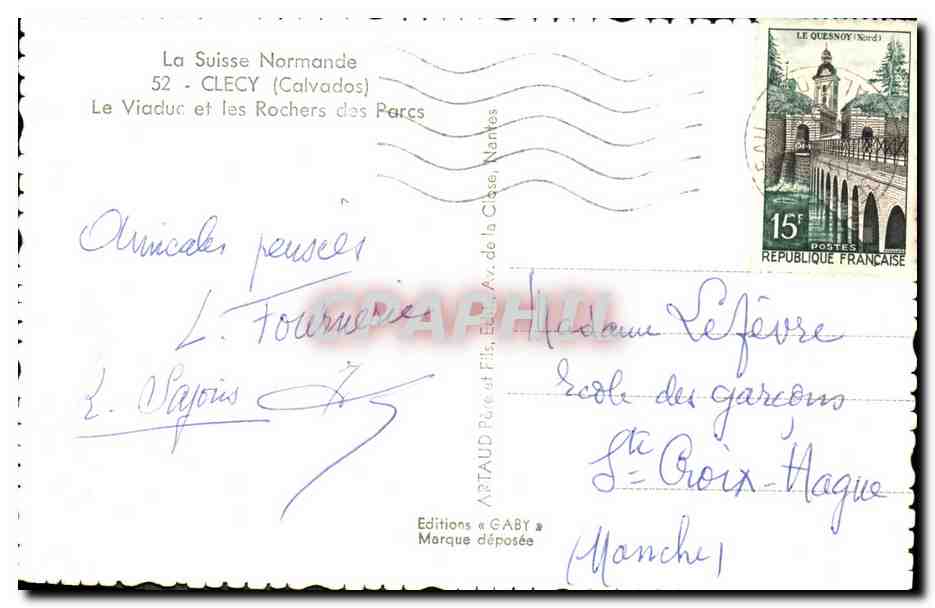 La Suisse Normande
52 - CLECY (Calvados)
Le Viaduc et les Rochers des Parcs
Amicales pensées
L. Fournerie
L. Sajous
ARTAUD Père et Fils, Edit., Av. de la Close, Nantes
Editions « GABY »
Marque déposée
LE QUESNOY (Nord)
15F
POSTES
REPUBLIQUE FRANÇAISE
Madame Lefèvre
Ecole des garçons
Ste Croix-Hague
(Manche)